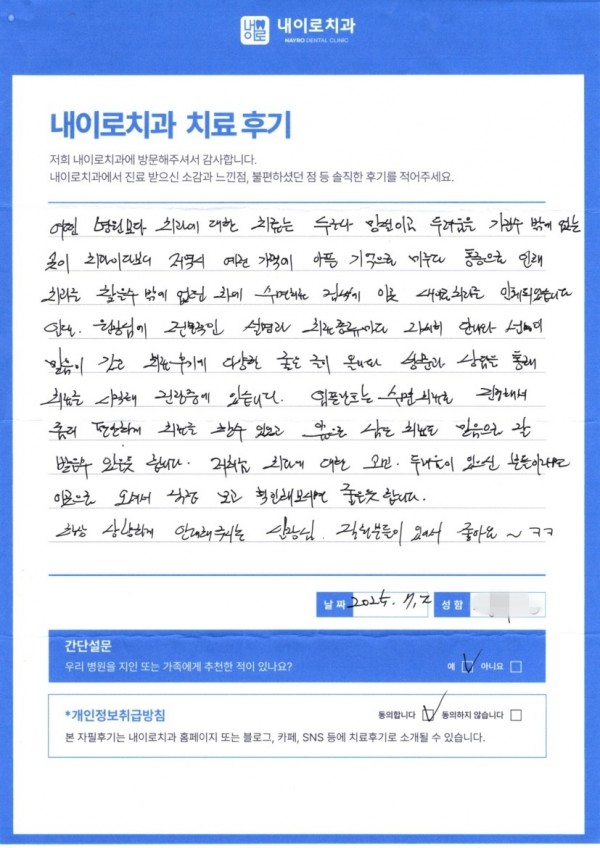 내이로치과
NAYRO DENTAL CLINIC
내이로치과 치료 후기
저희 내이로치과에 방문해주셔서 감사합니다.
내이로치과에서 진료 받으신 소감과 느낀점, 불편하셨던 점 등 솔직한 후기를 적어주세요.
어떤 병원보다 치과에 대한 치료는 누구나 망설이고 두려움을 가질수 밖에 없는
곳이 치과이다보니 저역시 예전 기억에 아픈 기억으로 미루다 통증으로 인해
치과를 찾을수 밖에 없던 차에 수면치료 검색에 이로 치과를
원장님에 전문적인 설명과 치료종류이다 자세히 안내와
믿음이 가고 치료후기에 다양한 좋은 글이 상담을 통해
치료를 시작해 진행중에 있습니다. 임플란트는 수면치료로 진행해서
좀더 편안하게 치료를 할수 있었고 앞으로 남은 치료도 믿음으로 잘
받을수 있을듯 합니다. 치과에 대한 두려움이 있으신 분들이라면
이로으로 오셔서 상담 보고 확인해보시면 좋을듯 합니다.
항상 상냥하게 안내해주시는 실장님. 직원분들이 있어서 좋아요 ~ ㅋㅋ
날짜 2025. 7. 2 성함
간단설문
우리 병원을 지인 또는 가족에게 추천한 적이 있나요? 예 아니요
*개인정보취급방침 동의합니다 동의하지 않습니다
본 자필후기는 내이로치과 홈페이지 또는 블로그, 카페, SNS 등에 치료후기로 소개될 수 있습니다.